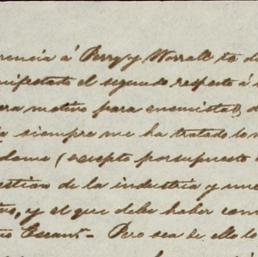 rencia á Perry y Worrall to d
anifestado el segundo respeto á
era motivo para enemistad, d
siempre me ha tratado
dome (escepto por supuesto
estion de la industria y
tro, y el que debe haber con
Pero sea de ello lo